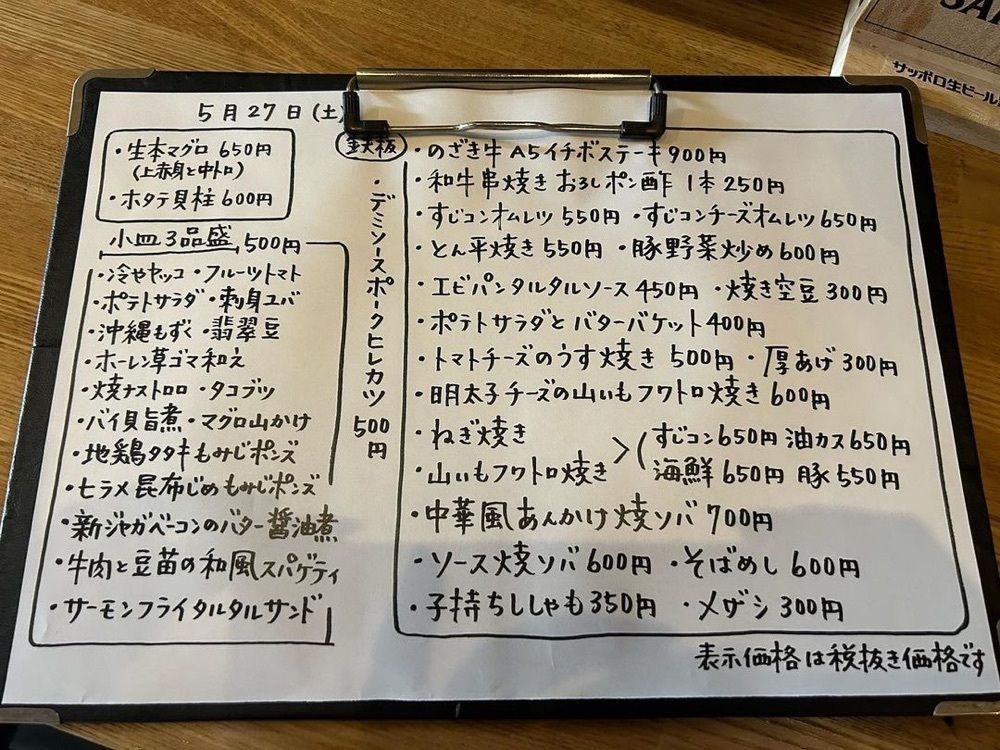 5月27日(土)
・生本マグロ 650円
(上赤身と中トロ)
・ホタテ貝柱 600円
小皿3品盛 500円
・冷ややッコ ・フルーツトマト
・ポテトサラダ ・刺身ユバ
・沖縄もずく ・翡翠豆
・ホーレン草ゴマ和え
・焼ナストロロ ・タコブツ
・バイ貝旨煮 ・マグロ山かけ
・地鶏タタキもみじポンズ
・ヒラメ昆布じめもみじポンズ
・新ジャガベーコンのバター醤油煮
・牛肉と豆苗の和風スパゲティ
・サーモンフライタルタルサンド
・デミソースポークヒレカツ 500円
鉄板
・のざき牛A5イチボステーキ 900円
・和牛串焼きおろしポン酢 1本250円
・すじコンオムレツ 550円 ・すじコンチーズオムレツ 650円
・とん平焼き 550円 ・豚野菜炒め 600円
・エビパンタルタルソース 450円 ・焼き空豆 300円
・ポテトサラダとバターバケット 400円
・トマトチーズのうす焼き 500円 ・厚あげ 300円
・明太子チーズの山いもフワトロ焼き 600円
・ねぎ焼き
・山いもフワトロ焼き
すじコン650円 油カス650円
海鮮650円 豚550円
・中華風あんかけ焼ソバ 700円
・ソース焼ソバ 600円 ・そばめし 600円
・子持ちししゃも 350円 ・メザシ 300円
表示価格は税抜き価格です
サッポロ生ビール